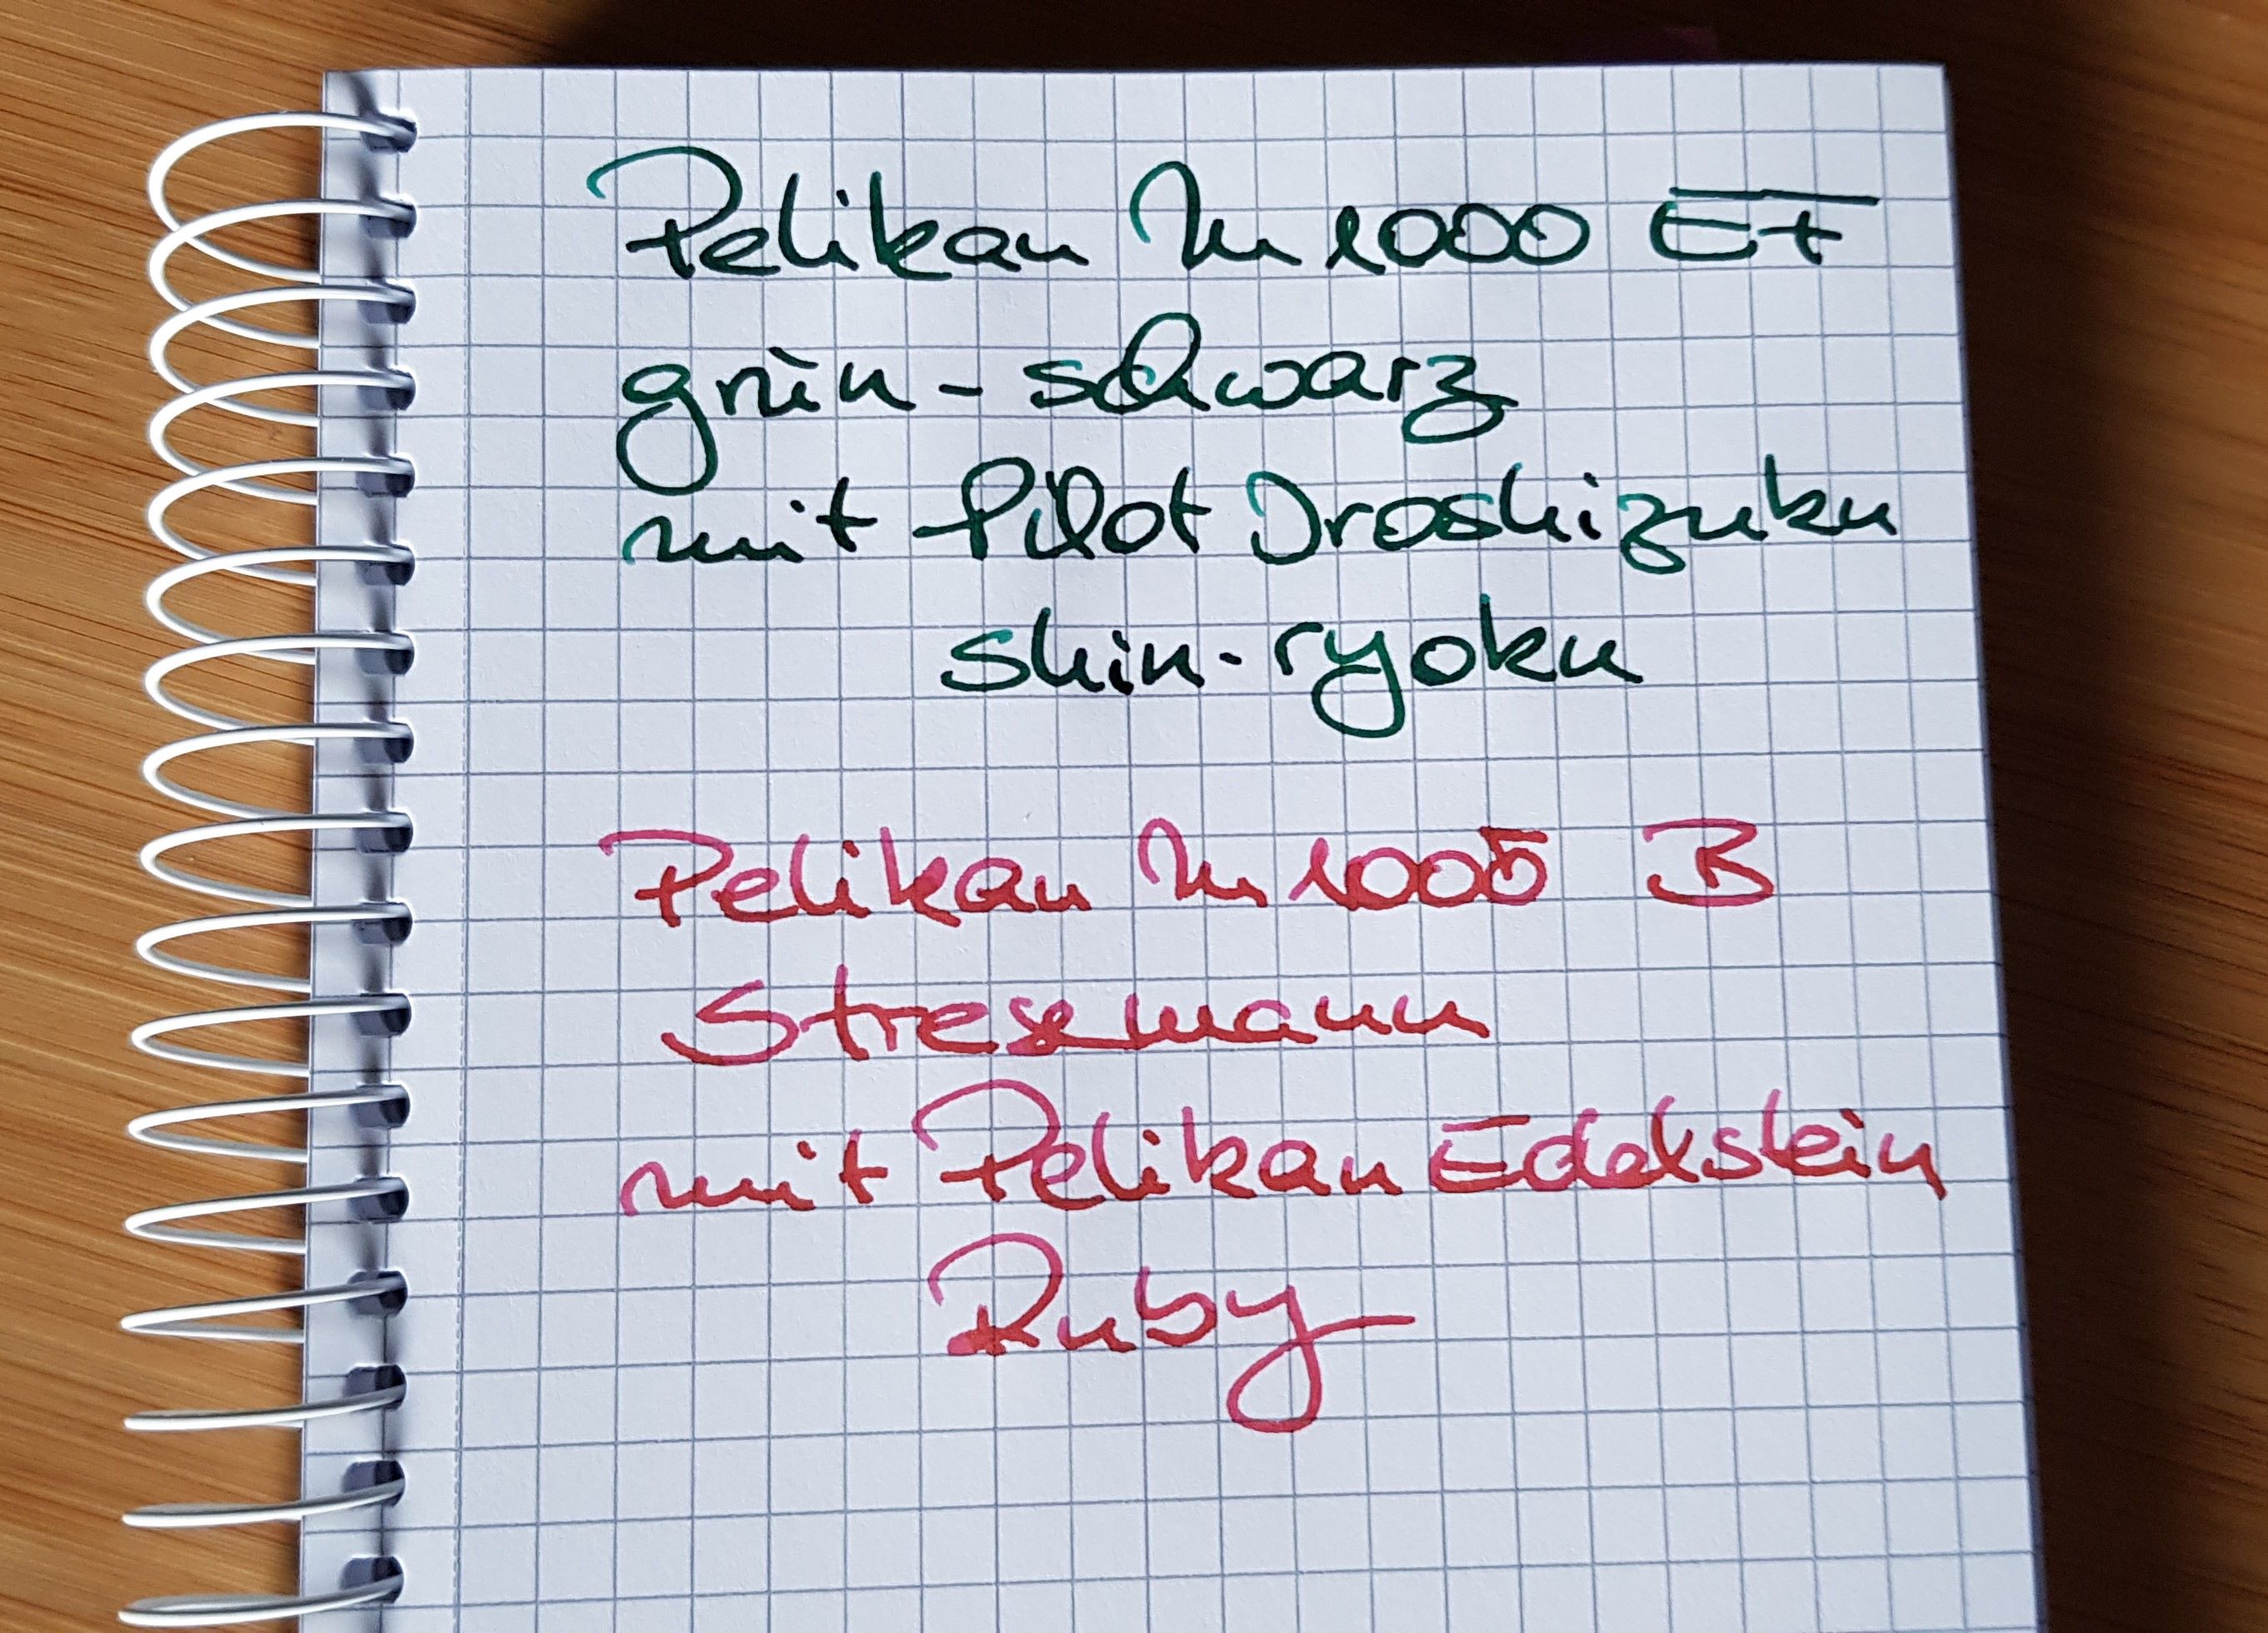 Pelikan M1000 EF
grün-schwarz
mit Pilot Iroshizuku
shin-ryoku
Pelikan M1005 B
Stresemann
mit Pelikan Edelstein
Ruby